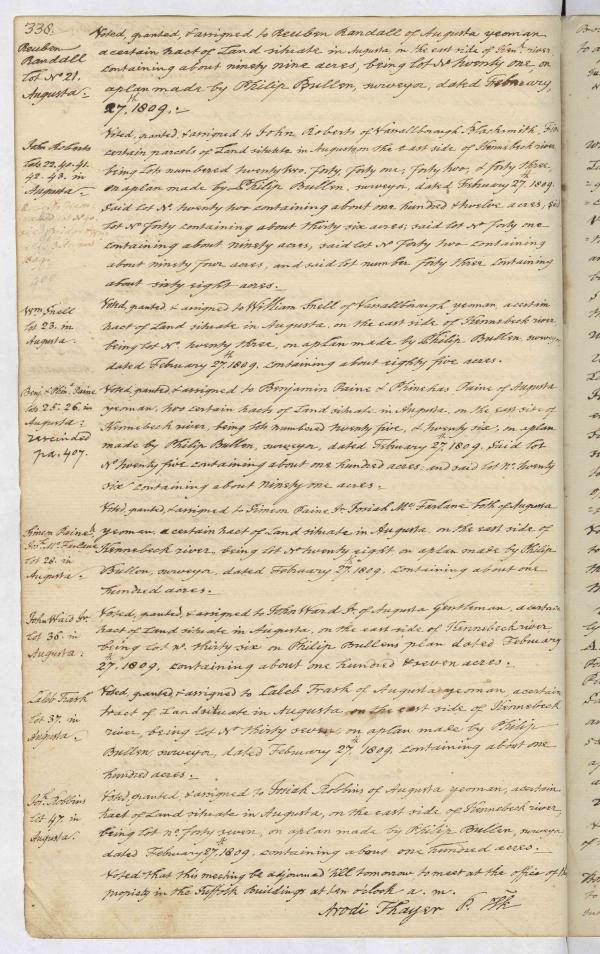 338.
Reuben
Randall
Lot No 21.
Augusta.
Voted, granted, & assigned to Reuben Randall of Augusta yeoman
a certain tract of Land situate in Augusta, on the east side of Kenk. river
containing about ninety nine acres, being Lot No twenty one, on
a plan made by Philip Bullen, surveyor, dated February,
27th. 1809.
John Roberts
Lots 22. 40. 41.
42. 43. in
Augusta.
Voted, granted, & assigned to John Roberts of Vassallborough Blacksmith, Five
certain parcels of Land situate in Augusta on the east side of Kennebeck river
being Lots numbered twenty two, forty, forty one, forty two, & forty three,
on a plan made by Philip Bullen, surveyor, dated February 27th. 1809.
Said Lot No. twenty two containing about one hundred & twelve acres, said
Lot No forty containing about thirty six acres; said Lot No forty one
containing about ninety acres, said Lot No forty two containing
about ninety four acres, and said Lot number forty three containing
about sixty eight acres.
Wm. Snell
Lot 23. in
Augusta.
Voted, granted & assigned to William Snell of Vassallborough, yeoman, a certain
tract of Land situate in Augusta, on the east side of Kennebeck river
being Lot No. twenty three, on a plan made by Philip Bullen, surveyor
dated February 27th. 1809. containing about eighty five acres.
Lots 25. 26. in
Augusta:
rescinded
pa. 407.
Voted, granted & assigned to Benjamin Paine & Phinehas Paine of Augusta
yeoman, two certain tracts of Land situate in Augusta, on the east side of
Kennebeck river, being Lots numbered twenty five, & twenty six, on a plan
made by Philip Bullen, surveyor, dated February 27th. 1809. Said Lot
No twenty five containing about one hundred acres: and said Lot No. twenty
six containing about ninety one acres.
Simeon Paine &
Josh. Mc Farlane
Lot 28. in
Augusta.
Voted, granted, & assigned to Simeon Paine Josiah Mc Farlane both of Augusta
yeomen, a certain tract of Land situate in Augusta, on the east side of
Kennebeck river, being Lot No twenty eight on a plan made by Philip
Bullen, surveyor, dated February 27th. 1809. containing about one
hundred acres.
John Ward Jr.
Lot 36. in
Augusta:
Voted, granted, & assigned to John Ward Jr. of Augusta Gentleman, a certain
tract of Land situate in Augusta, on the east side of Kennebeck river
being Lot No. thirty six on Philip Bullens plan dated February
27th. 1809. containing about one hundred & seven acres.
Caleb Trask
Lot 37. in
Augusta.
Voted, granted & assigned to Caleb Trask of Augusta yeoman, a certain
tract of Land situate in Augusta, on the east side of Kennebeck
river, being Lot No thirty seven, on a plan made by Philip
Bullen, surveyor, dated February 27th. 1809. containing about one
hundred acres.
Josh. Robbins
Lot 47. in
Augusta.
Voted, granted, & assigned to Josiah Robbins of Augusta yeoman, a certain
tract of Land situate in Augusta, on the east side of Kennebeck river
being Lot No. forty seven, on a plan made by Philip Bullen, surveyor
dated February 27th. 1809. containing about one hundred acres.
Voted that this meeting be adjourned till tomorrow to meet at the office of the
propriety in the Suffolk Buildings at ten o'clock a. m.
Arodi Thayer P. Clk